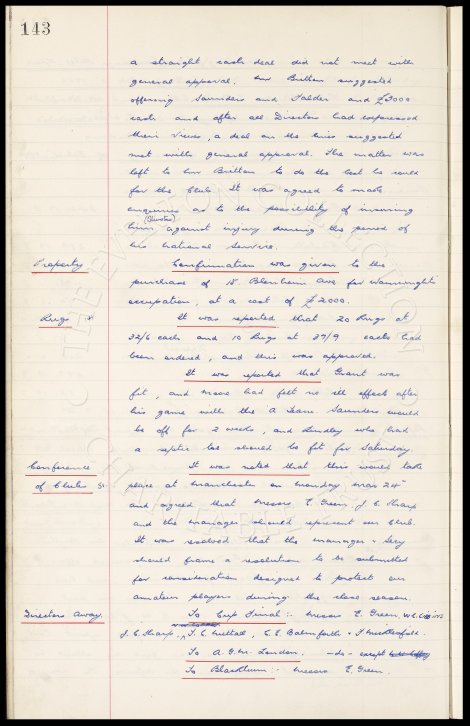 143
a straight cash deal did not meet with
general approval. Mr Britton suggested
offering Saunders and Falder and £3000
cash and after all Directors had expressed
their views, a deal on the lines suggested
met with general approval. The matter was
left to Mr Britton to do the best he could
for the Club. It was agreed to make
enquiries as to the possibility of insuring
him against injury during the period of
his National Service.
Property
Confirmation was given to the
purchase of 18. Blenheim Ave for Wainwright's
occupation, at a cost of £2000.
Rugs
It was reported that 20 Rugs at
32/6 each and 10 Rugs at 39/9 each had
been ordered, and this was approved.
It was reported that Grant was
fit, and Moore had felt no ill effects after
his game with the A Team. Saunders would
be off for 2 weeks, and Lindley who had
a septic toe should be fit for Saturday.
Conference
of Clubs
It was noted that this would take
place at Manchester on Monday Mar 24th
and agreed that Messrs E. Green, J.C. Sharp
and the Manager should represent our Club.
It was resolved that the Manager & Secy
should frame a resolution to be submitted
for consideration designed to protect our
amateur players during the close season.
Directors Away.
To Cup Final:- Messrs E. Green, W.C.
J.C. Sharp, T.C. Nuttall, C.E. Balmforth &
To A.G.M. London. -do- except
To Blackburn:- Messrs E. Green.
THE EVERTON COLLECTION CHARITABLE